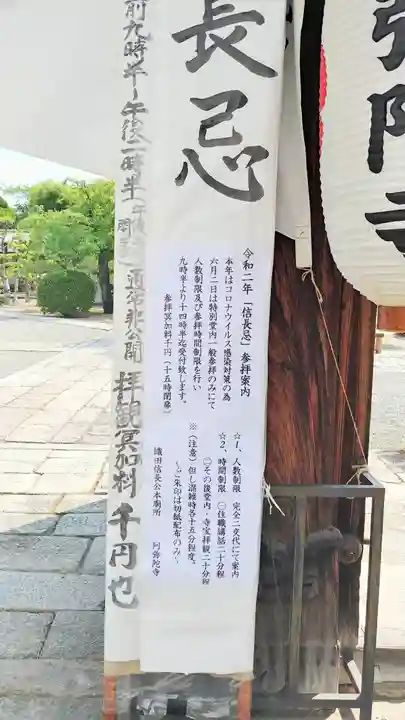 長忌
前九時半〜午後二時半
通常非公開
拝観冥加料 千円也
弥陀寺
令和二年「信長忌」参拝案内
本年はコロナウイルス感染対策の為
六月二日は特別堂内一般参拝のみにて
人数制限及び参拝時間制限を行い
九時半より十四時半迄受付致します。
参拝冥加料千円(十五時閉扉)
☆1、人数制限 完全二交代にて案内
☆2、時間制限 〇住職講話二十分程
〇その後堂内・寺宝拝観二十分程
※(注意)但し混雑時各十五分程度。
〜ご朱印は切紙配布のみ〜
織田信長公本廟所 阿弥陀寺